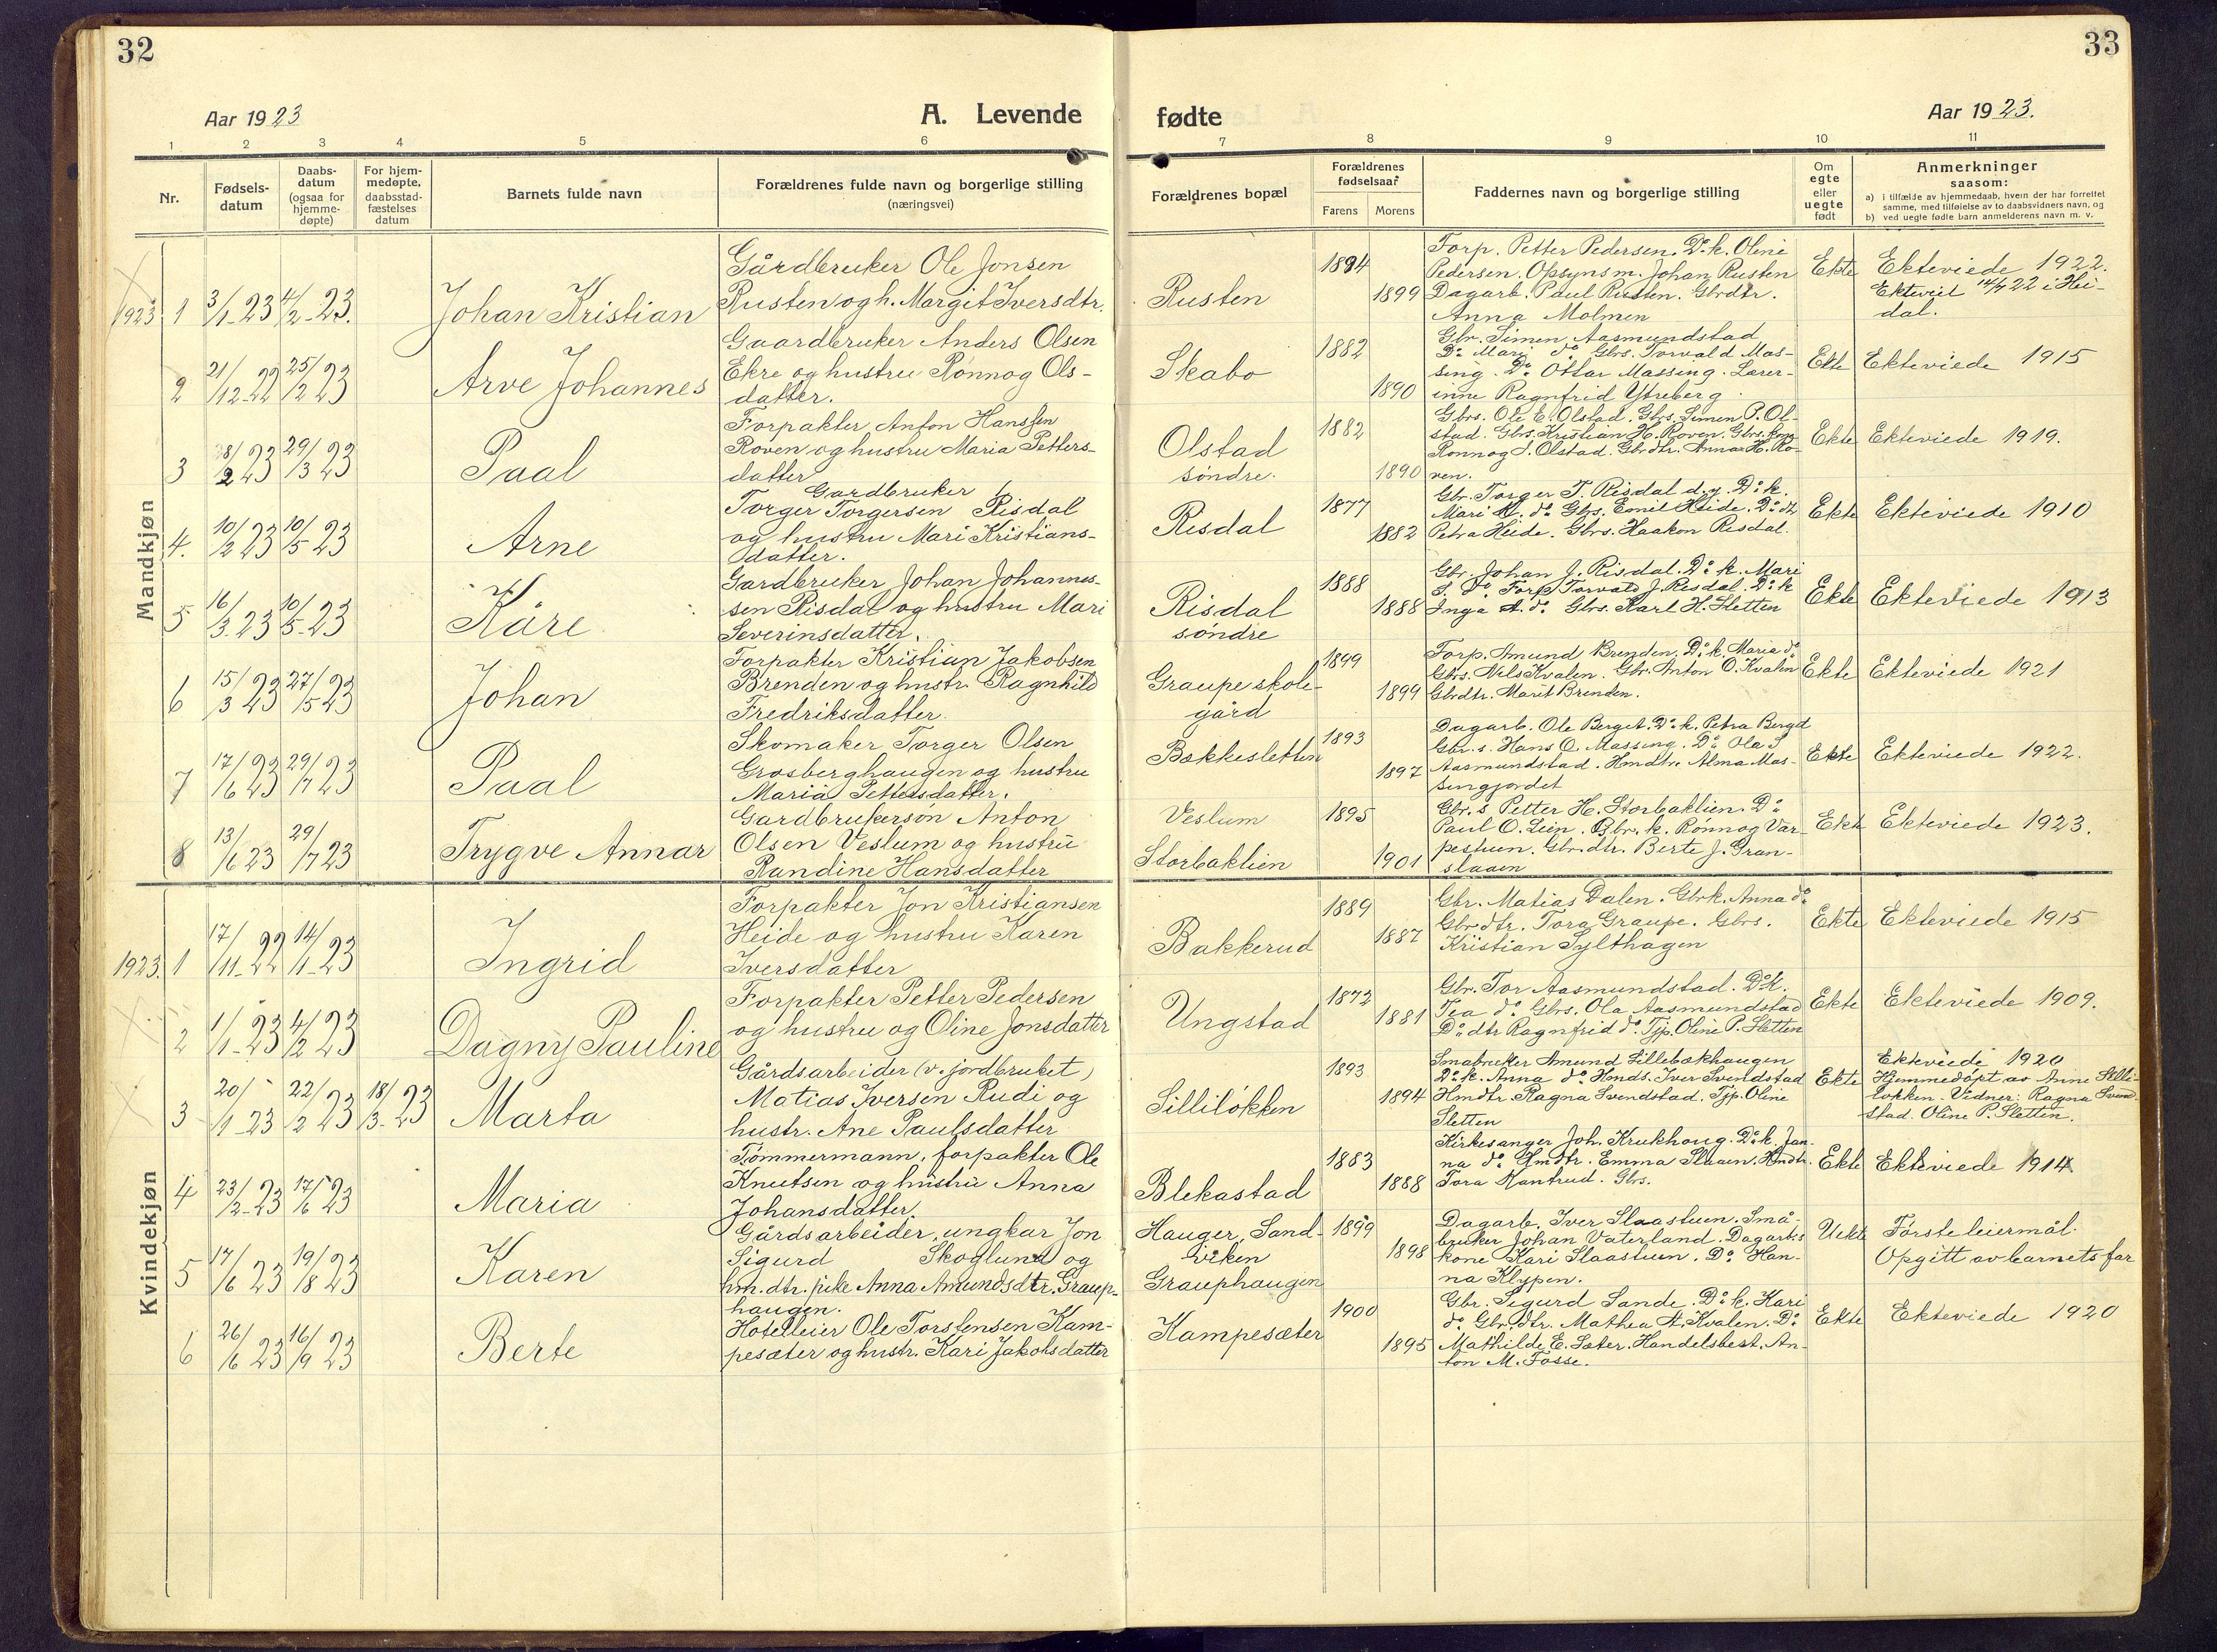 32
Aar 1923
A. Levende
1 2 3 4 5 6
Nr.
Fødsels-
datum
Daabs-
datum
(ogsaa for
hjemme-
døpte)
For hjem-
medøpte,
daabsstad-
fæstelses
datum
Barnets fulde navn
Forældrenes fulde navn og borgerlige stilling
(næringsvei)
Mandkjøn
1923 1 3/1-23 4/2-23. Johan Kristian
Gårdbruker Ole Jonsen
Rusten og h. Margit Iversdtr.
2 21/12-22 25/2 23 Arve Johannes
Gaardbruker Anders Olsen
Ekre og hustru Rønnog Ols-
datter.
3 8/2 23 29/3 23 Paal
Forpakter Anton Hanssen
Roven og hustru Maria Petters-
datter
4. 10/2 23 10/5-23 Arne
Gardbruker
Torger Torgersen Risdal
og hustru Mari Kristians-
datter.
5 16/3-23 10/5-23 Kåre
Gardbruker Johan Johannes-
sen Risdal og hustru Mari
Severinsdatter.
6 15/3 23 27/5 23 Johan
Forpakter Kristian Jakobsen
Brenden og hustr. Ragnhild
Fredriksdatter.
7 17/6 23 29/7 23 Paal
Skomaker Torger Olsen
Grosberghaugen og hustru
Maria Pettersdatter.
8 13/6 23 29/7 23 Trygve Annar
Gardbrukersøn Anton
Olsen Veslum og hustru
Randine Hansdatter
Kvindekjøn
1923. 1 17/11-22 14/1-23 Ingrid
Forpakter Jon Kristiansen
Heide og hustru Karen
Iversdatter
2 1/1-23 4/2 23 Dagny Pauline
Forpakter Petter Pedersen
og hustru og Oline Jonsdatter
3 20/1-23 22/2 23 18/3-23 Marta
Gårdsarbeider (v. jordbruket)
Matias Iversen Rudi og
hustr. Ane Paulsdatter
4 23/2-23 17/6 23 Maria
Tømmermann, forpakter Ole
Knutsen og hustru Anna
Johansdatter.
5 17/6 23 19/8 23 Karen
Gårdsarbeider, ungkar Jon
Sigurd Skoglund og
hm. dtr. pike Anna Amundsdtr. Graup-
haugen.
6 26/6 23 16/9 23 Berte
Hotelleier Ole Torstensen Kam-
pesæter og hustr. Kari Jakobsdatter
33
fødte
Aar 1923.
7 8 9 10 11
Forældrenes bopæl
Forældrenes
fødselsaar
Farens Morens
Faddernes navn og borgerlige stilling
Om
egte
eller
uegte
født
Anmerkninger
saasom:
a) i tilfælde av hjemmedaab, hvem der har forrettet
samme, med tilføielse av to daabsvidners navn, og
b) ved uegte fødte barn anmelderens navn m. v.
Rusten 1894 1899
Forp. Petter Pedersen. Do k. Oline
Pedersen. Opsynsm. Johan Rusten
Dagarb. Paul Rusten. Gbrdtr.
Anna Molmen
Ekte Ekteviede 1922.
Ekteviet 14/4 22 i Hei-
dal.
Skabo 1882 1890
Gbr. Simen Aasmundstad
Do Mari do Gbrs. Torvald Mas-
sing. Do Ottar Massing. Lærer-
inne Ragnfrid Ytreberg.
Ekte Ekteviede 1915
Olstad
søndre. 1882 1890
Gbrs. Ole E. Olstad. Gbrs. Simen P. Ol-
stad. Gbrs. Kristian H. Roven. Gbrs. kone
Rønnog S. Olstad. Gbrdtr. Anna H. Ro-
ven.
Ekte Ekteviede 1919.
Risdal 1877 1882
Gbr. Torger T. Risdal d.y. Do k.
Mari K. do Gbs. Emil Heide. Do dtr
Petra Heide. Gbrs. Haakon Risdal.
Ekte Ekteviede 1910
Risdal
søndre 1888 1888
Gbr. Johan J. Risdal. Do k. Mari
S. do Forp. Torvald J. Risdal. Do k
Inga A. do. Gbrs. Karl H. Sletten
Ekte Ekteviede 1913
Graupe skole-
gård 1899 1899
Forp. Amund Brenden. Do k. Maria do
Gbrs. Nils Kvalen. Gbr. Anton O. Kvalen
Gbrdtr. Marit Brenden.
Ekte Ekteviede 1921
Bækkesletten 1893 1897
Dagarb. Ole Berget. Do k. Petra Berget
Gbr. s. Hans O. Massing. Do Ola S
Aasmundstad. Hmdtr. Alma Mas-
singjordet
Ekte Ekteviede 1922.
Veslum
Storbaklien 1895 1901
Gbr. s Petter H. Storbaklien. Do
Paul O. Lien. Gbr. k. Rønnog Var-
pestuen. Gbr. dtr. Berte J. Gran-
slaaen
Ekte Ekteviede 1923.
Bakkerud 1889 1887
Gbr. Matias Dalen. Gbrk. Anna do
Gbrdtr. Tora Graupe. Gbrs.
Kristian Sylthagen
Ekte Ekteviede 1915
Ungstad 1872 1881
Gbr. Tor Aasmundstad. Do k.
Tea do Gbrs. Ola Aasmundstad
Do dtr Ragnfrid do. Tjp. Oline P. Sletten
Ekte Ekteviede 1909.
Lilliløkken 1893 1894
Smabruker Amund Lillebækhaugen
Do k. Anna do Hmds. Iver Svendstad
Hmdtr. Ragna Svendstad. Tjp. Oline
Sletten
Ekte Ekteviede 1920
Hjemmedøpt av Anne Lilli-
løkken. Vidner: Ragna Svend-
stad. Oline P. Sletten.
Blekastad 1883 1888
Kirkesanger Joh. Krukhoug. Do k. Jan-
na do Hmdtr. Emma Slaaen. Hmdtr.
Tora Kantrud. Gbrs.
Ekte Ekteviede 1914
Hauger, Sand-
viken
Grauphaugen 1899 1898
Dagarb. Iver Slaastuen. Små-
bruker Johan Vaterland. Dagarb.s
kone Kari Slaastuen. Do Han-
na Klypen.
Uekte Første leiermål.
Opgitt av barnets far
Kampesæter 1900 1895
Gbr. Sigurd Sande. Do k. Kari
do Gbr. dtr. Mathea A. Kvalen. Do
Mathilde E. Sæter. Handelsbest. An-
ton M. Fosse.
Ekte Ekteviede 1920